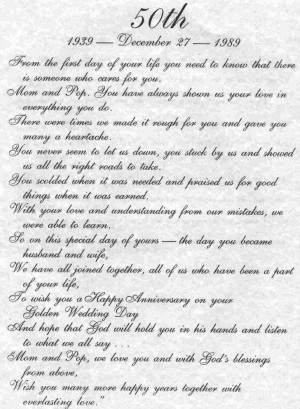 50th
1939 — December 27 — 1989
From the first day of your life you need to know that there
is someone who cares for you.
Mom and Pop. You have always shown us your love in
everything you do.
There were times we made it rough for you and gave you
many a heartache.
You never seem to let us down, you stuck by us and showed
us all the right roads to take.
You scolded when it was needed and praised us for good
things when it was earned.
With your love and understanding from our mistakes, we
were able to learn.
So on this special day of yours — the day you became
husband and wife,
We have all joined together, all of us who have been a part
of your life,
To wish you a Happy Anniversary on your
Golden Wedding Day
And hope that God will hold you in his hands and listen
to what we all say . . .
Mom and Pop, we love you and with God's blessings
from above,
Wish you many more happy years together with
everlasting love."